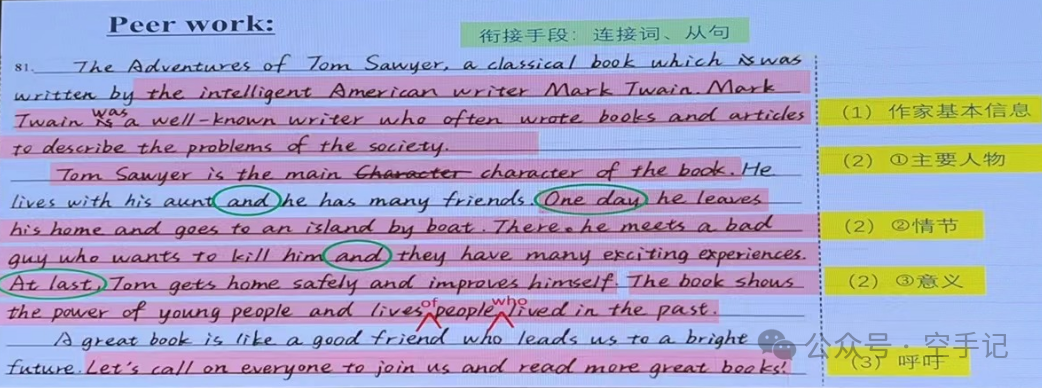 Peer work:
衔接手段：连接词、从句
81. The Adventures of Tom Sawyer, a classical book which is was
written by the intelligent American writer Mark Twain. Mark
Twain is was a well-known writer who often wrote books and articles
to describe the problems of the society.
(1) 作家基本信息
Tom Sawyer is the main Character character of the book. He
(2) ①主要人物
lives with his aunt and he has many friends. One day he leaves
his home and goes to an island by boat. There he meets a bad
(2) ②情节
guy who wants to kill him and they have many exciting experiences.
At last, Tom gets home safely and improves himself. The book shows
(2) ③意义
the power of young people and lives of people who lived in the past.
A great book is like a good friend who leads us to a bright
future. Let's call on everyone to join us and read more great books!
(3) 呼吁
公众号·空手记